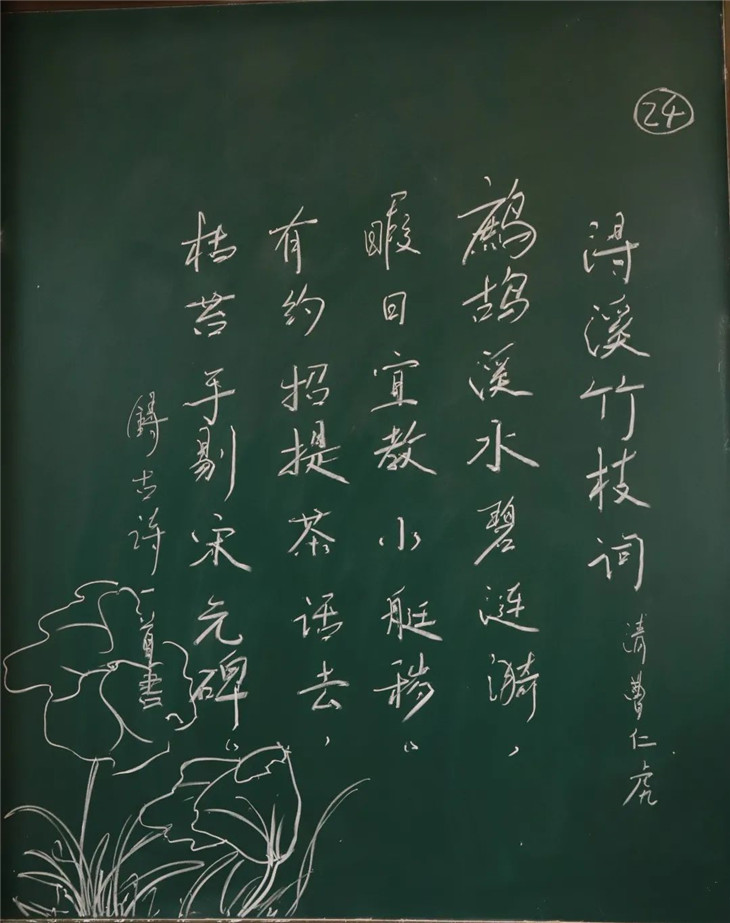 24
浔溪竹枝词
清 曹仁虎
鹧鸪溪水碧涟漪，
暇日宜教小艇移。
有约招提茶话去，
枯苔手剔宋元碑。
古诗一首書